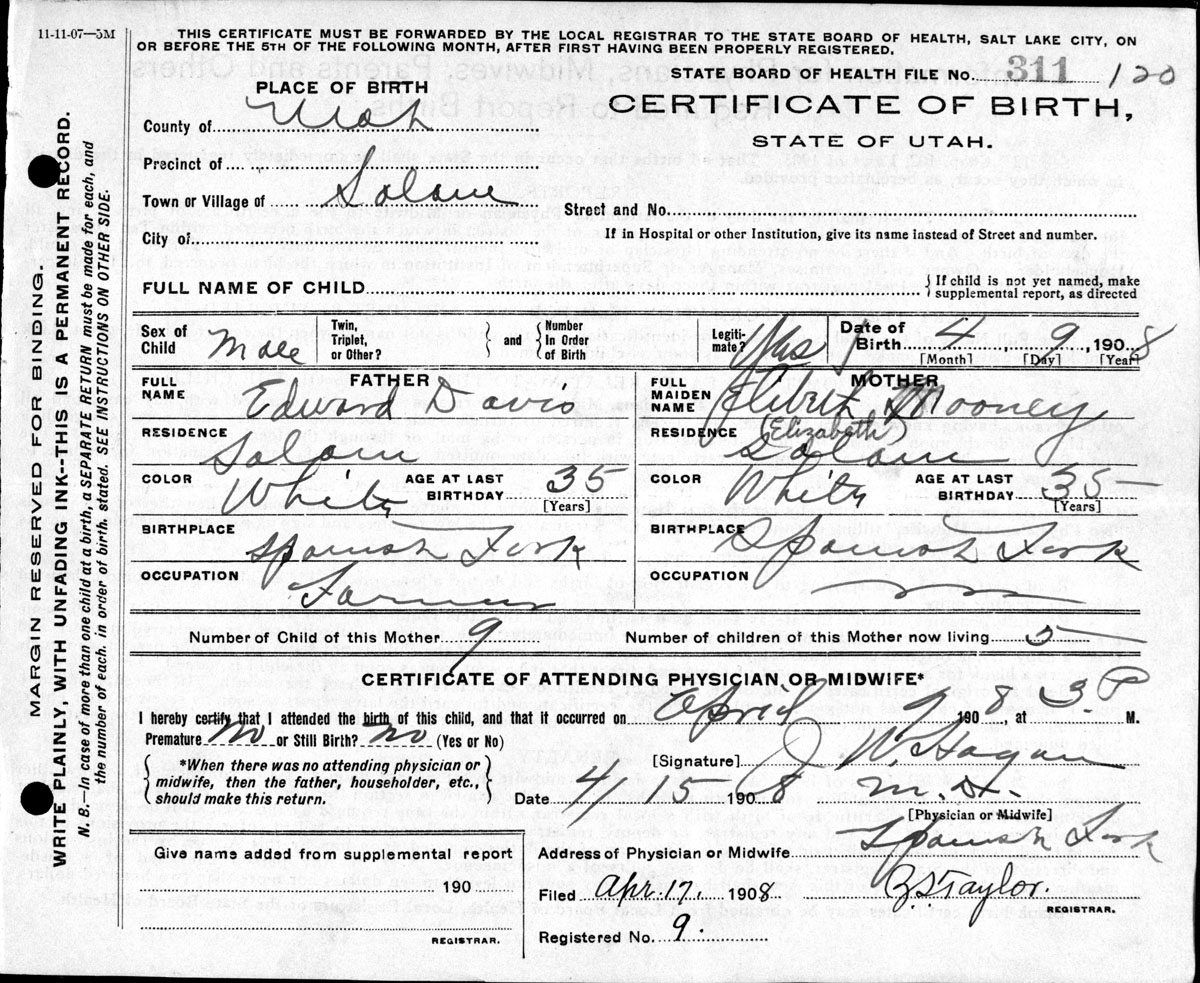 11-11-07—5M
THIS CERTIFICATE MUST BE FORWARDED BY THE LOCAL REGISTRAR TO THE STATE BOARD OF HEALTH, SALT LAKE CITY, ON
OR BEFORE THE 5TH OF THE FOLLOWING MONTH, AFTER FIRST HAVING BEEN PROPERLY REGISTERED.
STATE BOARD OF HEALTH FILE No. 311 120
PLACE OF BIRTH
CERTIFICATE OF BIRTH,
STATE OF UTAH.
County of Utah
Precinct of
Town or Village of Salem
Street and No.
City of
If in Hospital or other Institution, give its name instead of Street and number.
FULL NAME OF CHILD
{ If child is not yet named, make
supplemental report, as directed
Sex of Child Male
Twin, Triplet, or Other?
} and {
Number In Order of Birth
Legiti-mate? Yes
Date of Birth 4 9, 1908
[Month] [Day] [Year]
FATHER
FULL NAME Edward Davis
RESIDENCE Salem
COLOR White AGE AT LAST BIRTHDAY 35
[Years]
BIRTHPLACE Spanish Fork
OCCUPATION Farmer
MOTHER
FULL MAIDEN NAME Mooney
(Elizabeth)
RESIDENCE Salem
COLOR White AGE AT LAST BIRTHDAY 35
[Years]
BIRTHPLACE Spanish Fork
OCCUPATION
Number of Child of this Mother 9 Number of children of this Mother now living 5
CERTIFICATE OF ATTENDING PHYSICIAN OR MIDWIFE*
I hereby certify that I attended the birth of this child, and that it occurred on April 9 1908, at 3 P M.
Premature No or Still Birth? No (Yes or No)
{ *When there was no attending physician or
midwife, then the father, householder, etc.,
should make this return. }
[Signature] J W. Hagan
Date 4/15 1908 M.D.
[Physician or Midwife]
Address of Physician or Midwife Spanish Fork
Give name added from supplemental report
190
REGISTRAR.
Filed Apr. 17. 1908 Z. S. Taylor.
REGISTRAR.
Registered No. 9.
MARGIN RESERVED FOR BINDING.
WRITE PLAINLY, WITH UNFADING INK--THIS IS A PERMANENT RECORD.
N. B.—In case of more than one child at a birth, a SEPARATE RETURN must be made for each, and
the number of each, in order of birth, stated. SEE INSTRUCTIONS ON OTHER SIDE.